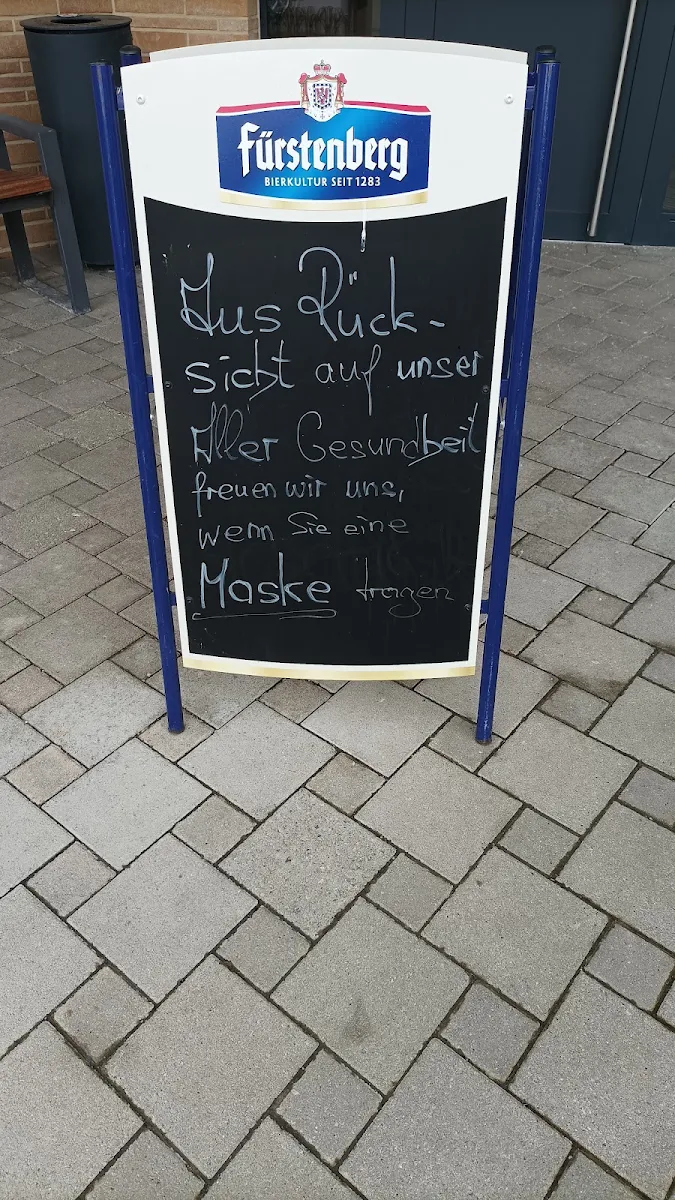 Fürstenberg
BIERKULTUR SEIT 1283
Aus Rück-
sicht auf unser
Aller Gesundheit
freuen wir uns,
wenn Sie eine
Maske tragen